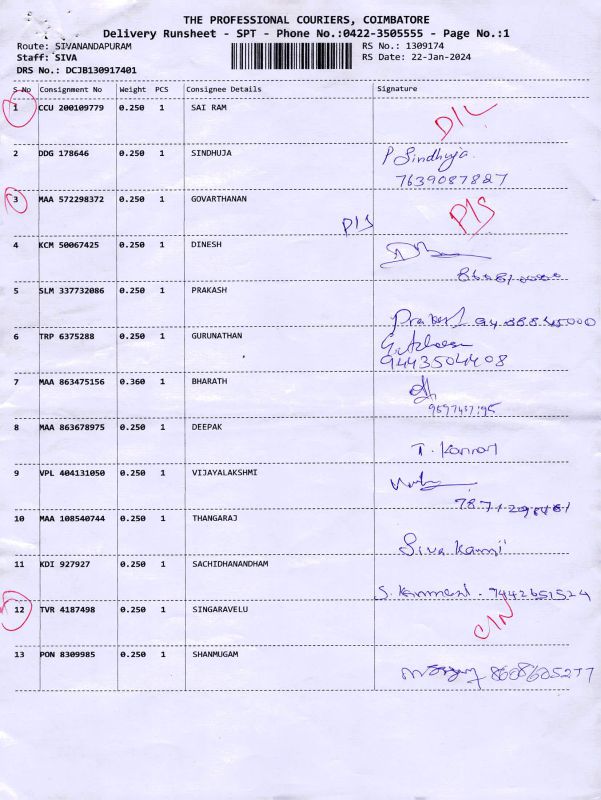 THE PROFESSIONAL COURIERS, COIMBATORE
Delivery Runsheet - SPT - Phone No.:0422-3505555 - Page No.:1
Route: SIVANANDAPURAM RS No.: 1309174
Staff: SIVA RS Date: 22-Jan-2024
DRS No.: DCJB130917401
S No Consignment No Weight PCS Consignee Details Signature
1 CCU 200109779 0.250 1 SAI RAM D/L
2 DDG 178646 0.250 1 SINDHUJA P Sindhuja
7639087827
3 MAA 572298372 0.250 1 GOVARTHANAN P/S P/S
4 KCM 50067425 0.250 1 DINESH
5 SLM 337732086 0.250 1 PRAKASH
6 TRP 6375288 0.250 1 GURUNATHAN
9443504408
7 MAA 863475156 0.360 1 BHARATH
8 MAA 863678975 0.250 1 DEEPAK T. Kannan
9 VPL 404131050 0.250 1 VIJAYALAKSHMI
10 MAA 108540744 0.250 1 THANGARAJ Siva Kanni
11 KDI 927927 0.250 1 SACHIDHANANDHAM
12 TVR 4187498 0.250 1 SINGARAVELU C/N
13 PON 8309985 0.250 1 SHANMUGAM 8608605277